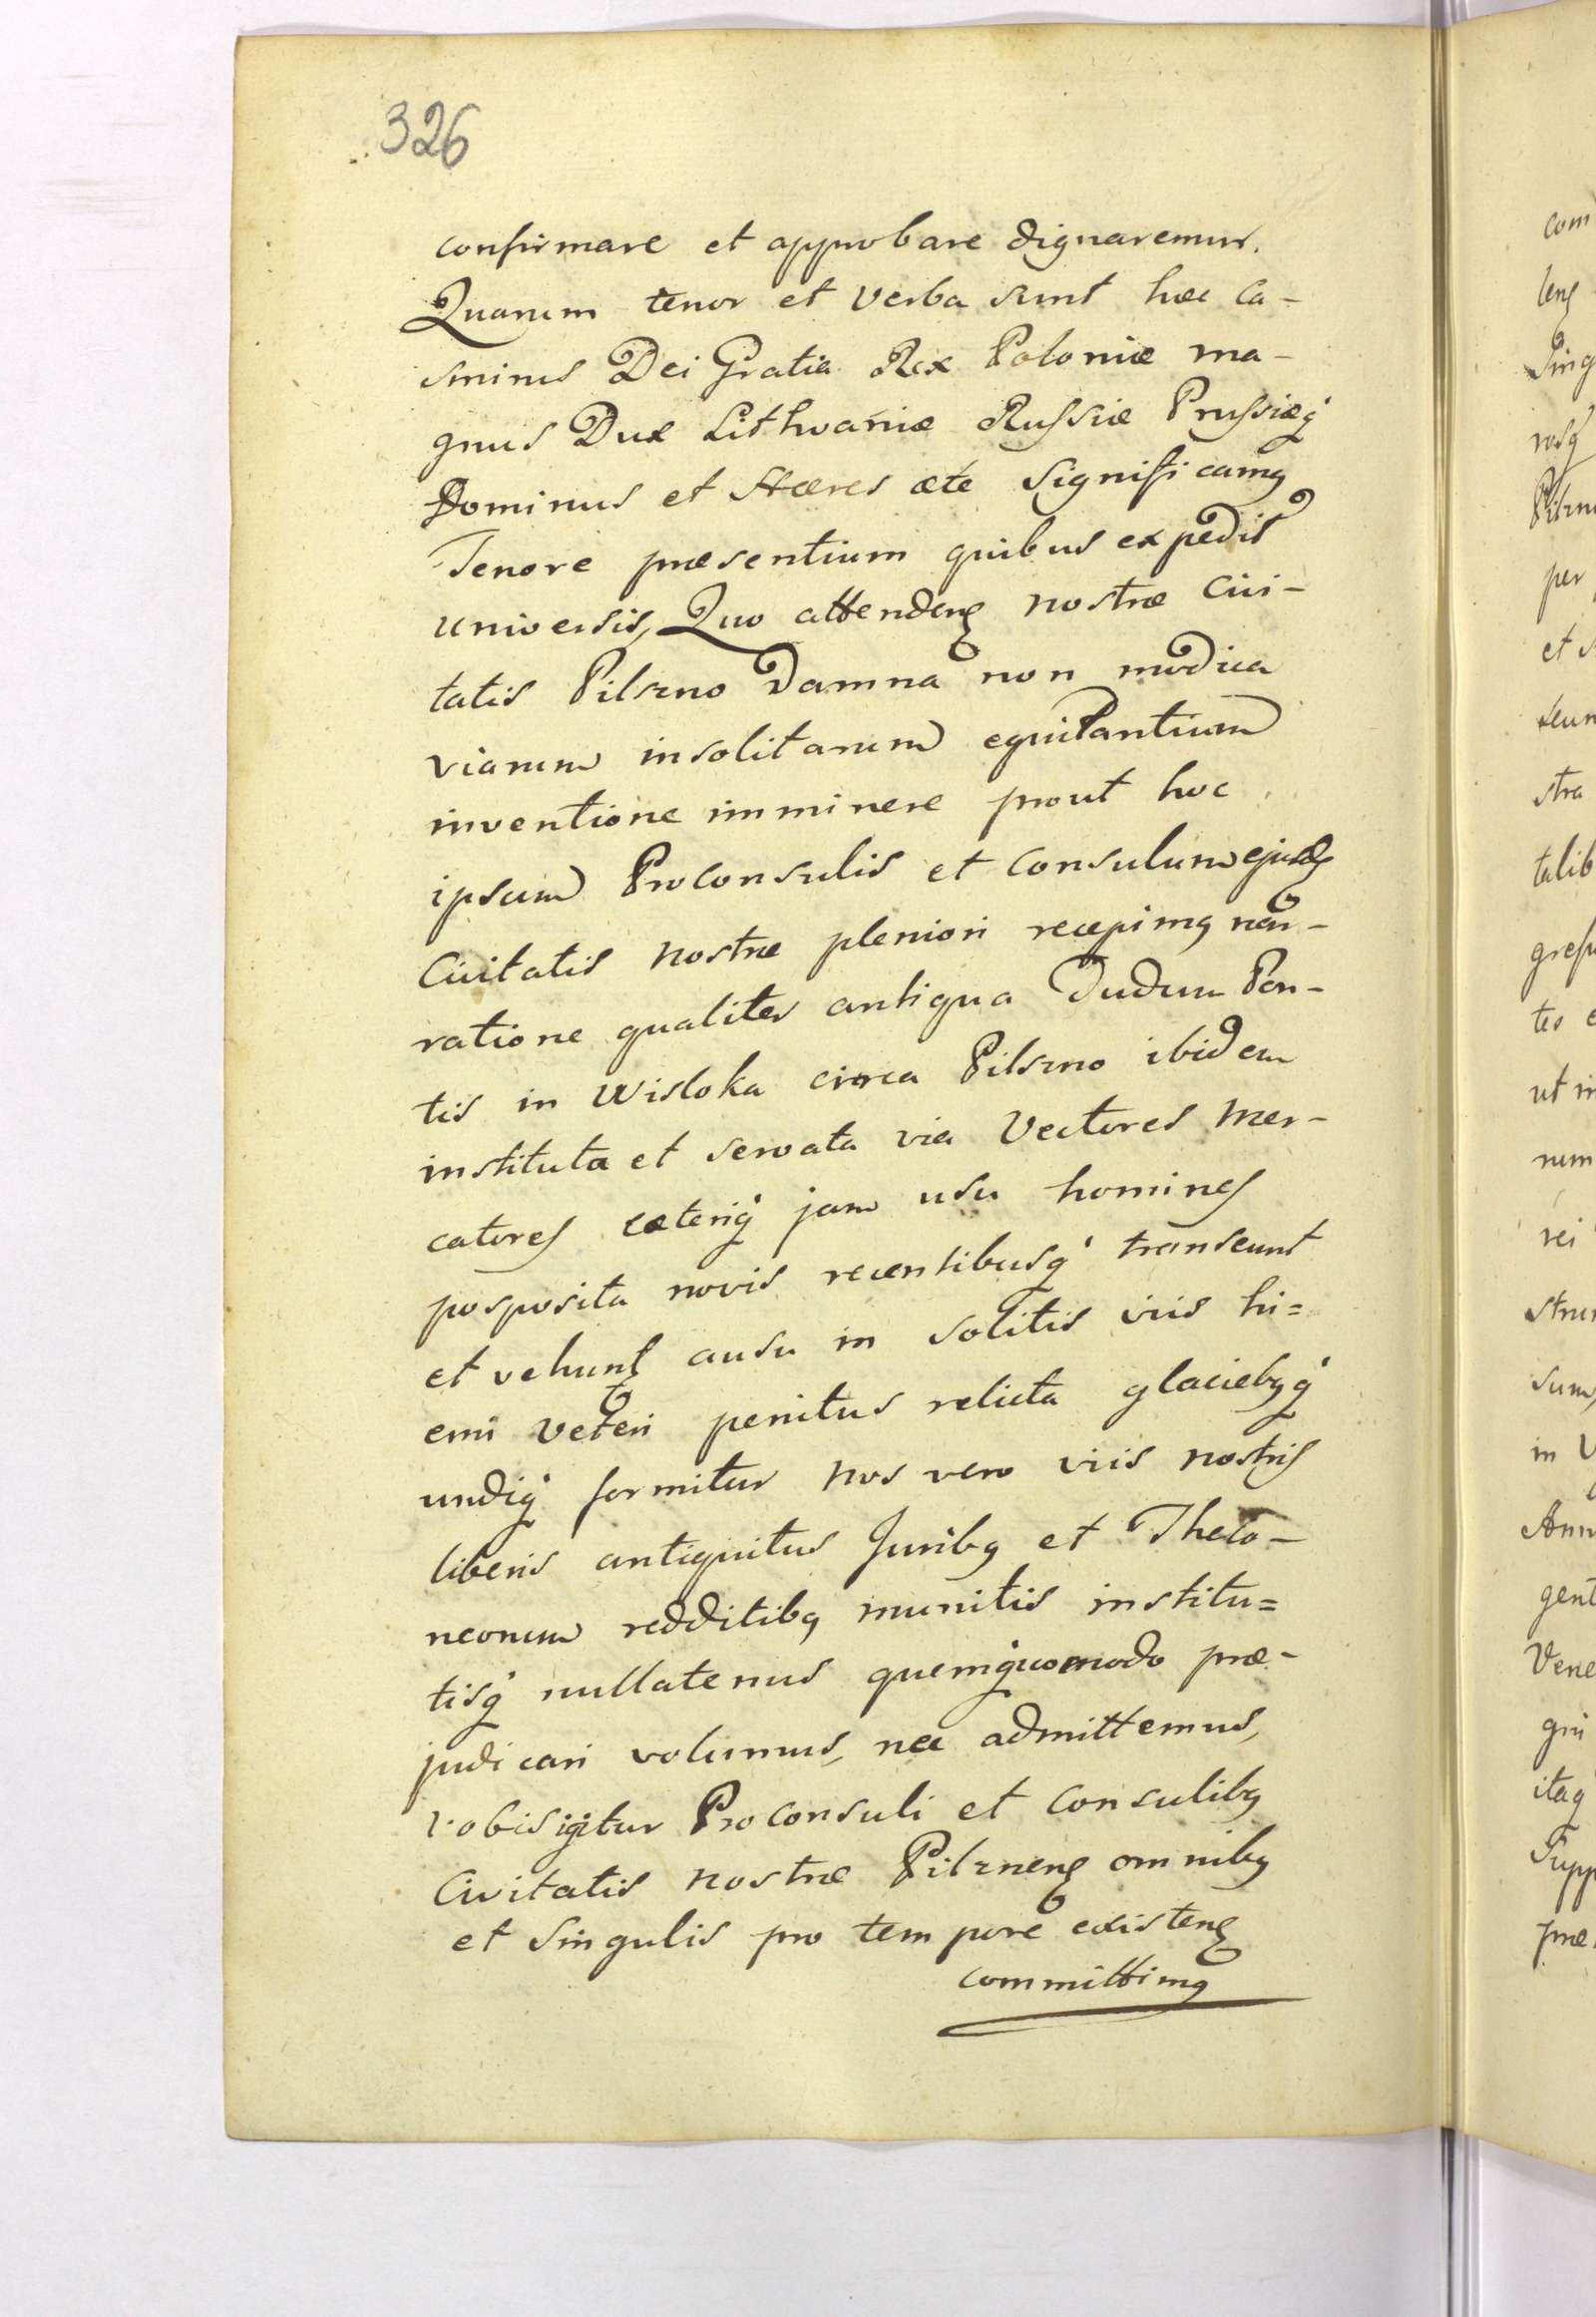 326
confirmare et approbare dignaremur.
Quarum tenor et verba sunt hæc Ca-
smirus Dei Gratia Rex Poloniæ ma-
gnus Dux Lithvaniæ Russiæ Prussiæq́
Dominus et Hæres æte significamꝰ
Tenore præsentium quibus expedit
universis, Quo attendenꝭ nostræ Civi-
tatis Pilszno damna non modica
viarum insolitarum equitantium
inventione imminere prout hoc
ipsum Proconsulis et Consulum ejusdꝭ
Civitatis nostræ pleniori recepimꝰ nar-
ratione qualiter antiqua dudum Pon-
tis in Wisloka circa Pilszno ibidem
instituta et servata via Vectores Mer-
catores cæteriq́ jam usu homines
posposita novis recentibusq́ transeunt
et vehunt ausu in solitis viis hi=
emi veteri penitus relicta glaciebꝰq́
undiq́ formitur nos vero viis nostris
liberis antiquitus Juribꝰ et Thelo-
neorum redditibꝰ munitis institu=
tisq́ nullatenus quemq́uomodo præ-
judicari volumus, nec admittemus,
vobis igitur Proconsuli et Consulibꝰ
Civitatis nostræ Pilznenꝭ omnibꝰ
et singulis pro tempore existenꝭ
committimꝰ
com
lenꝭ
Sing
rosq́
Pilzn
per
et s
seun
stra
talib
gress
tes e
ut in
num
rei
strum
sum,
in V
Ann
gent
Vene
gni
itaq
Supp
præ